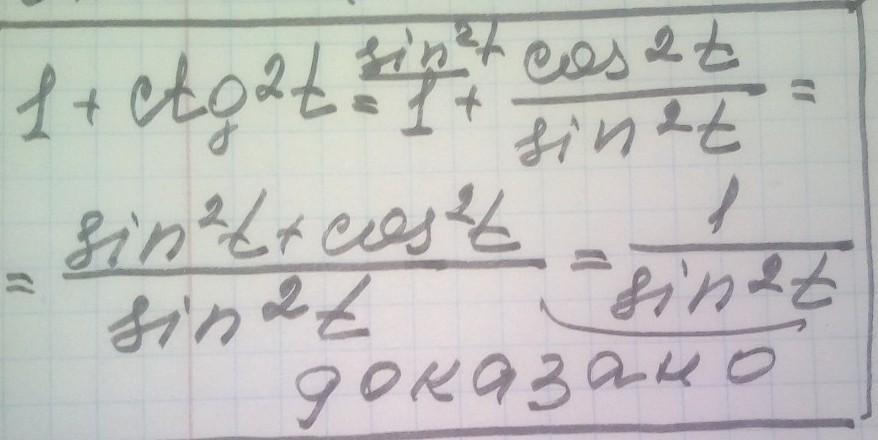 1 + ctg²t = 1 + cos²t / sin²t =
sin²t
= sin²t + cos²t / sin²t = 1 / sin²t
доказано